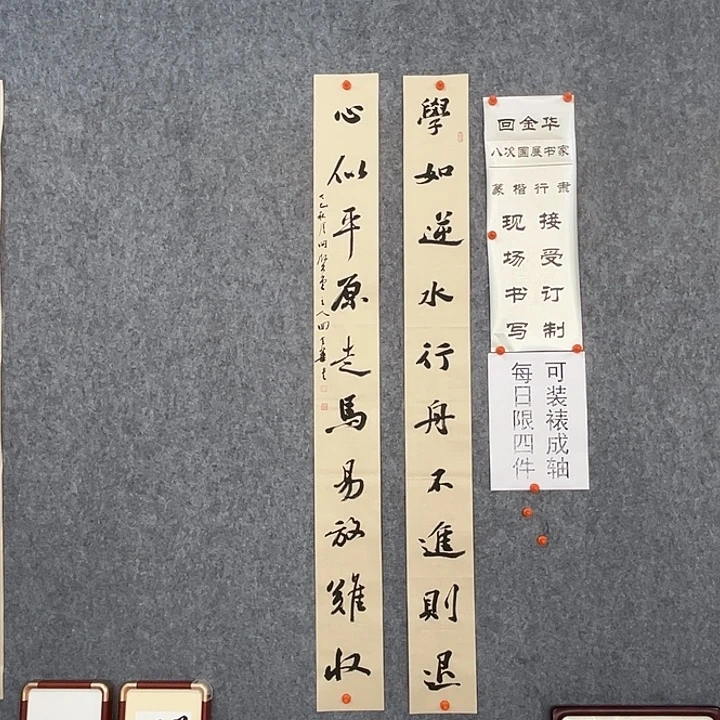 回金华
八次国展书家
篆楷行隶
接受订制
现场书写
可装裱成轴
每日限四件
學如逆水行舟不進則退
心似平原走馬易放難收